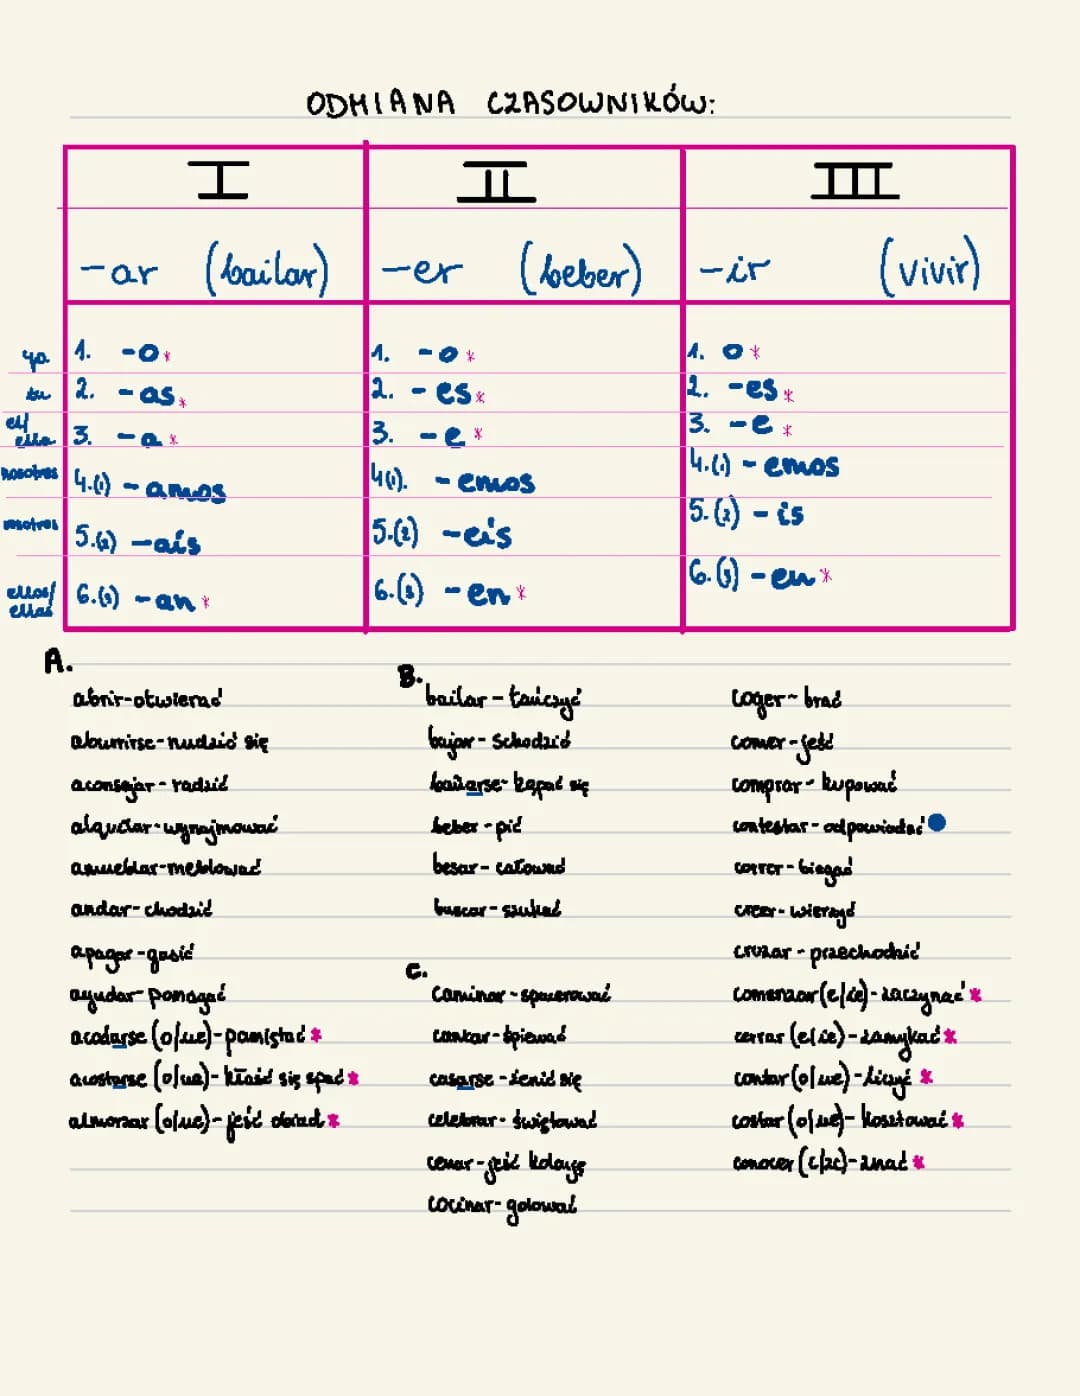 ODMIANA CZASOWNIKÓW:
I II III
-ar (bailar) -er (beber) -ir (vivir)
yo 1. -o* 1. -o* 1. o*
tu 2. -as* 2. -es* 2. -es*
el/ella 3. -a* 3. -e* 3. -e*
nosotros 4.(1) -amos 4(1). -emos 4.(1) -emos
vosotros 5.(2) -aís 5.(2) -eís 5.(2) -is
ellos/ellas 6.(3) -an* 6.(3) -en* 6.(3) -en*
A.
abrir-otwierać
aburrirse-nudzić się
aconsejar-radzić
alquilar-wynajmować
amueblar-meblować
andar-chodzić
apagar-gasić
ayudar-pomagać
acodarse (o/ue)-pamiętać *
acostarse (o/ue)-kłaść się spać *
almorzar (o/ue)-jeść obiad *
B.
bailar-tańczyć
bajar-schodzić
bañarse-kąpać się
beber-pić
besar-całować
buscar-szukać
C.
caminar-spacerować
cantar-śpiewać
casarse-żenić się
celebrar-świętować
cenar-jeść kolację
cocinar-gotować
coger-brać
comer-jeść
comprar-kupować
contestar-odpowiadać
correr-biegać
creer-wierzyć
cruzar-przechodzić
comenzar (e/ie)-zaczynać *
cerrar (e/ie)-zamykać *
contar (o/ue)-liczyć *
costar (o/ue)-kosztować *
conocer (c/zc)-znać *